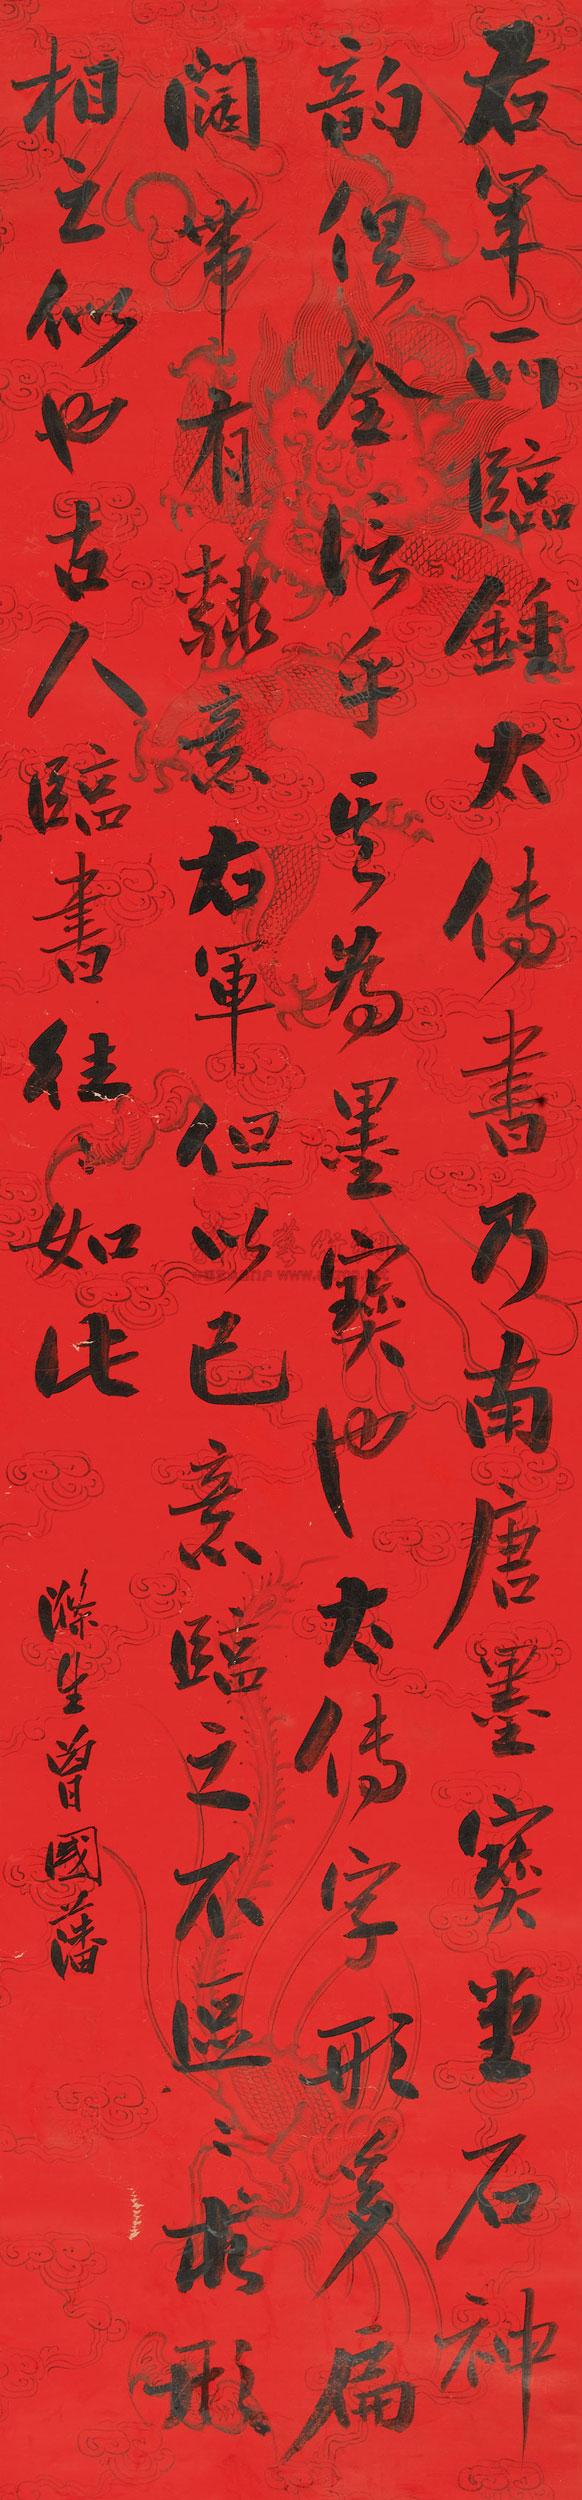 右軍所臨鍾太傅書乃南唐墨寶堂石神
韵俱全信乎其為墨寶也太傅字形多扁
闊帶有隸意右軍但以己意臨之不區〻於形
相之似也古人臨書往〻如此
滌生曾國藩